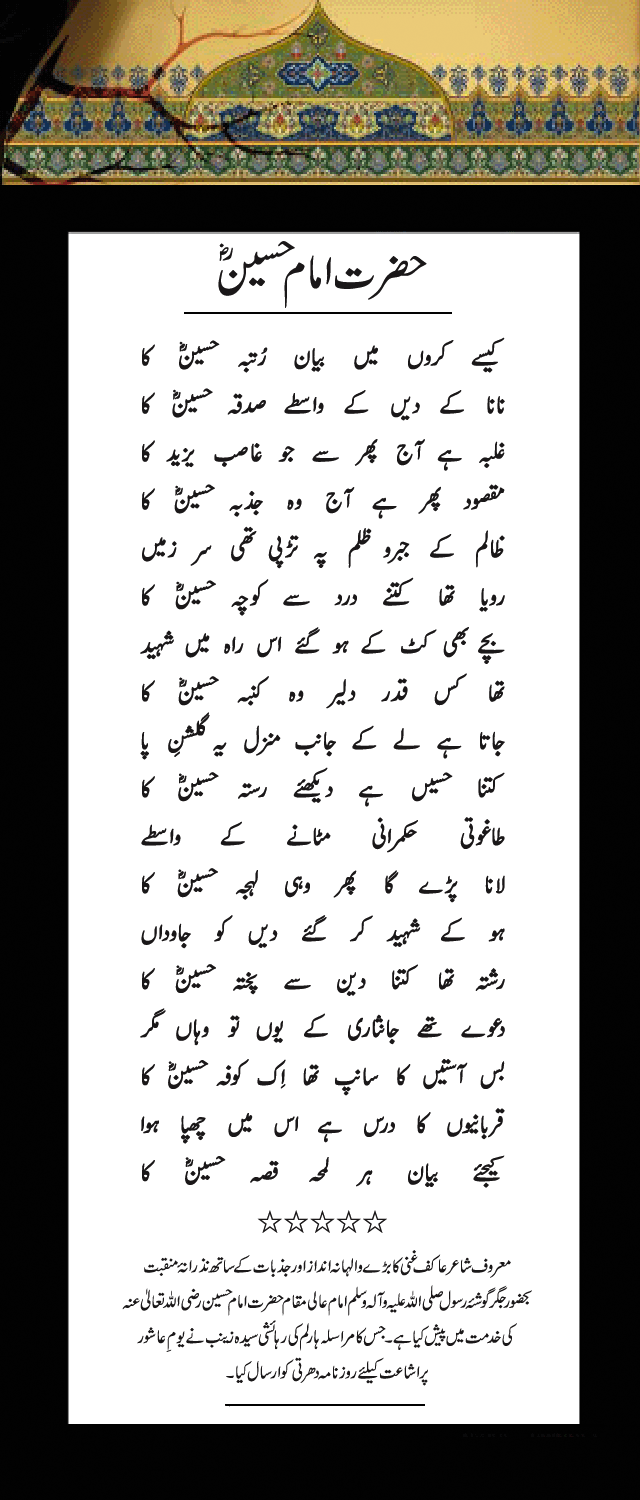 حضرت امام حسینؓ
کیسے کروں میں بیان رُتبہ حسینؓ کا
نانا کے دیں کے واسطے صدقہ حسینؓ کا
غلبہ ہے آج پھر سے جو غاصب یزید کا
مقصود پھر ہے آج وہ جذبہ حسینؓ کا
ظالم کے جبر و ظلم پہ تڑپی تھی سر زمیں
رویا تھا کتنے درد سے کوچہ حسینؓ کا
بچے بھی کٹ کے ہو گئے اس راہ میں شہید
تھا کس قدر دلیر وہ کنبہ حسینؓ کا
جاتا ہے لے کے جانب منزل یہ گلشنِ پا
کتنا حسیں ہے دیکھئے رستہ حسینؓ کا
طاغوتی حکمرانی مٹانے کے واسطے
لانا پڑے گا پھر وہی لہجہ حسینؓ کا
ہو کے شہید کر گئے دیں کو جاوداں
رشتہ تھا کتنا دین سے پختہ حسینؓ کا
دعوے تھے جانثاری کے یوں تو وہاں مگر
بس آستیں کا سانپ تھا اِک کوفہ حسینؓ کا
قربانیوں کا درس ہے اس میں چھپا ہوا
کیجئے بیان ہر لمحہ قصہ حسینؓ کا
☆☆☆☆☆
معروف شاعر عاکف غنی کا بڑے والہانہ انداز اور جذبات کے ساتھ نذرانۂ منقبت
بحضور جگر گوشۂ رسول صلی اللہ علیہ وآلہ وسلم امام عالی مقام حضرت امام حسین رضی اللہ تعالیٰ عنہ
کی خدمت میں پیش کیا ہے۔ جس کا مراسلہ ہارلم کی رہائشی سیدہ زینب نے یومِ عاشور
پر اشاعت کیلئے روزنامہ دھرتی کو ارسال کیا۔